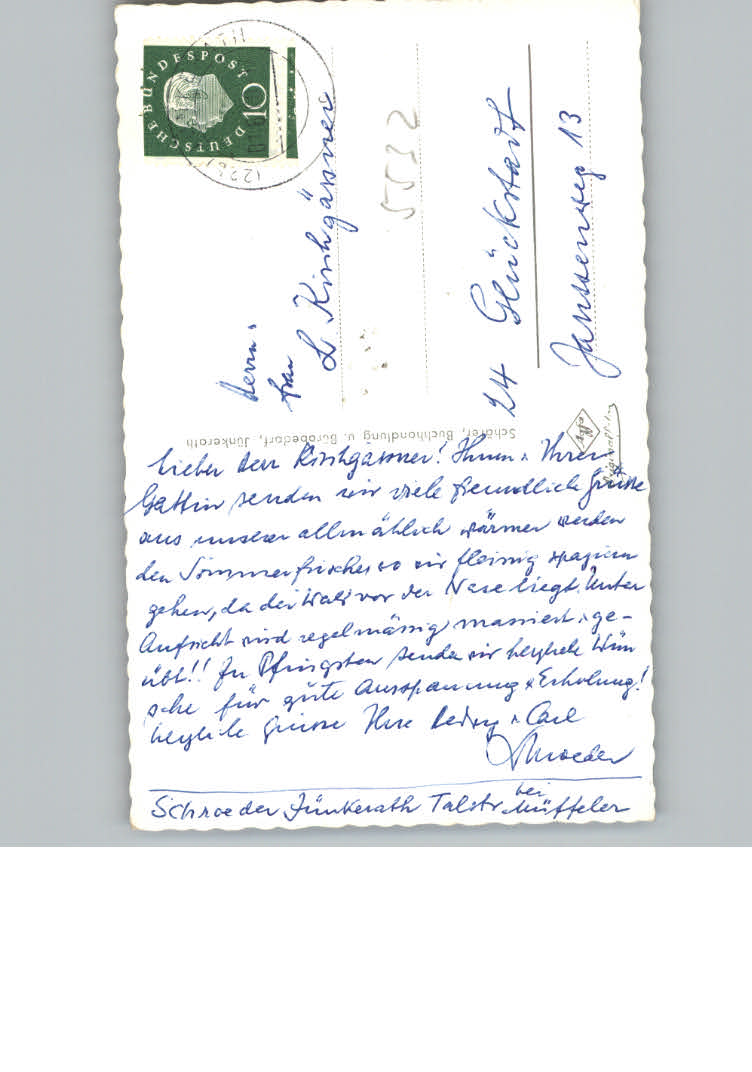 DEUTSCHE BUNDESPOST
10
(22
Herrn u.
Frau
L. Kirchgässner
5532
24 Glückstadt
Janssenweg 13
Schäfer, Buchhandlung u. Bürobedarf, Jünkerath
Agfa
Lieber Herr Kirchgässner! Ihnen u. Ihrer
Gattin senden wir viele freundliche Grüsse
aus unserer allmählich wärmer werden
den Sommerfrische, wo wir fleissig spazieren
gehen, da der Wald vor der Nase liegt. Unter
Aufsicht wird regelmässig massiert u. ge-
übt!! Zu Pfingsten senden wir herzliche Wün
sche für gute Ausspannung & Erholung!
herzliche Grüsse Ihre u. Carl
Schroeder
Schroeder Jünkerath Talstr bei Müffeler